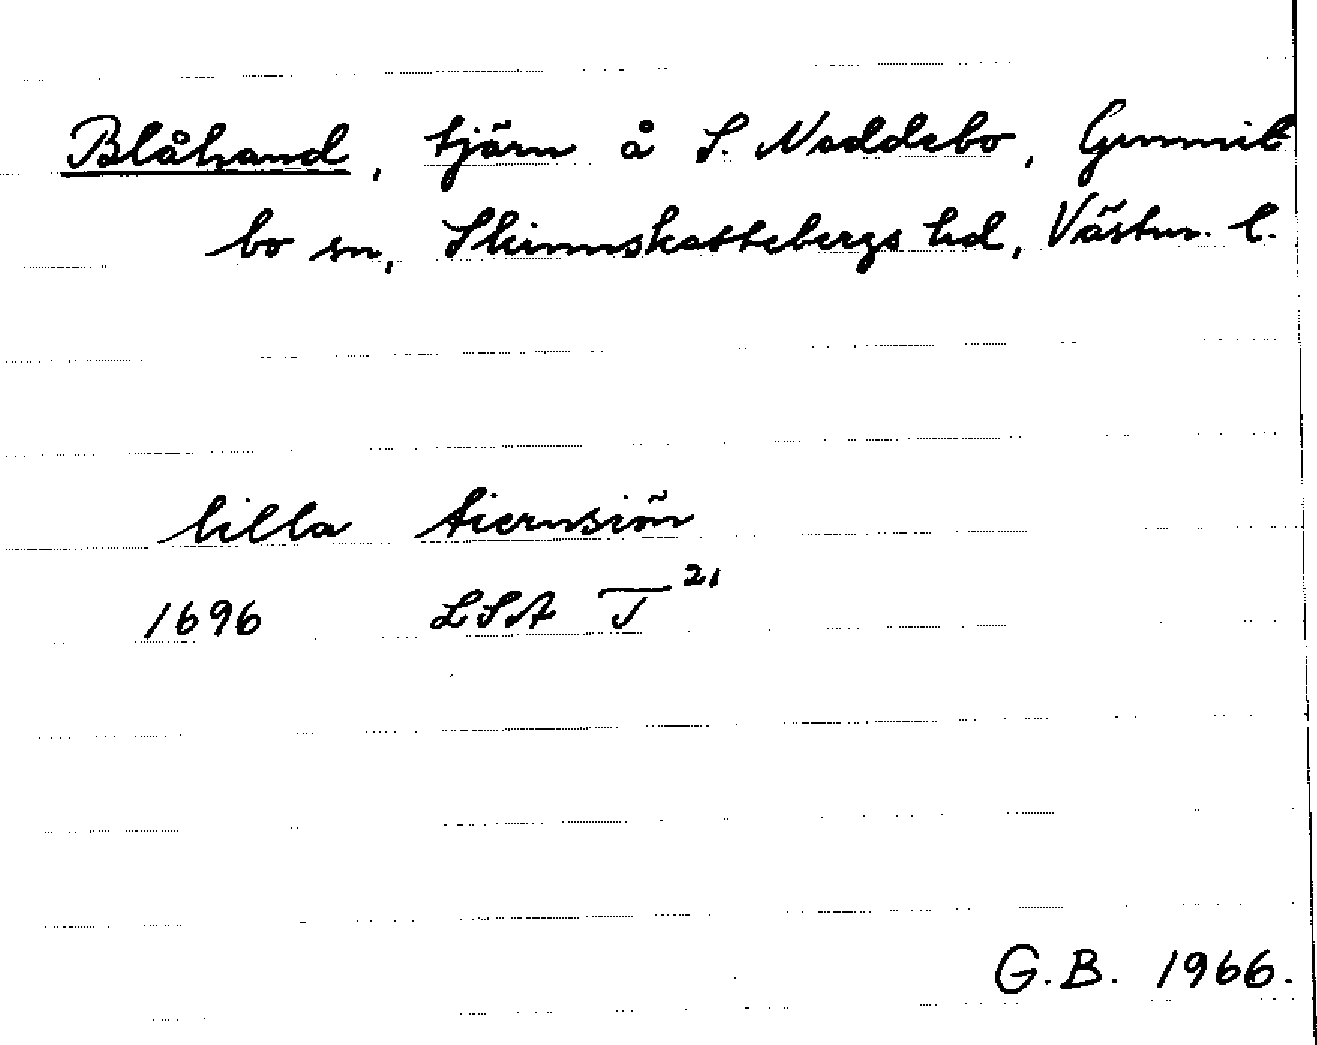 Blåhand, tjärn å S. Naddebo, Gunnil
bo sn, Skinnskattebergs hd, Västm. l.
lilla tiernsiön
1696 LSA T 21
G.B. 1966.